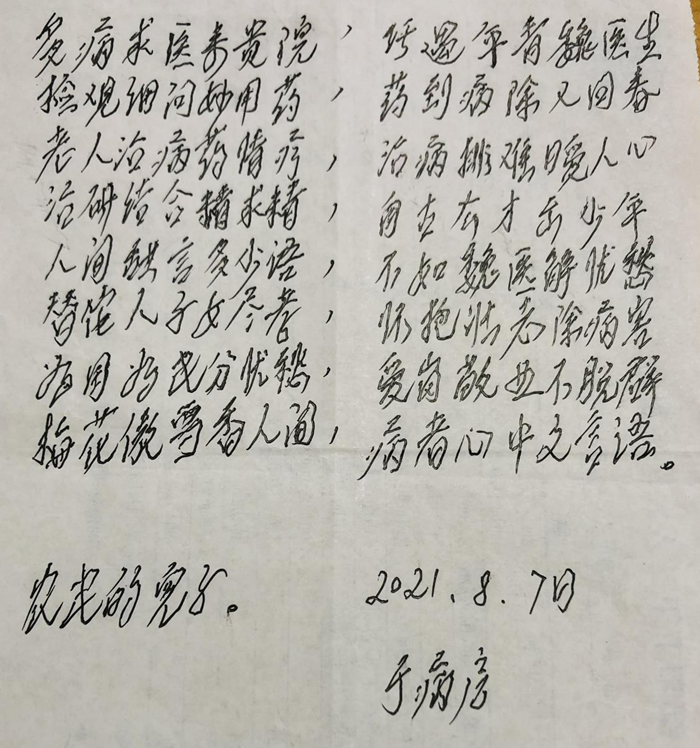 多病求医来贵院，巧遇年青魏医生
检观细问妙用药，药到病除又回春
老人治病药膳疗，治病排难暖人心
治研结合精求精，自古有才出少年
人间缺言多少语，不如魏医解忧愁
替佗人子女尽孝，怀抱壮志除病害
为国为民分忧愁，爱岗敬业不脱群
梅花傲雪香人间，病者心中文言语。
农民的儿子。 2021.8.7日
于病房